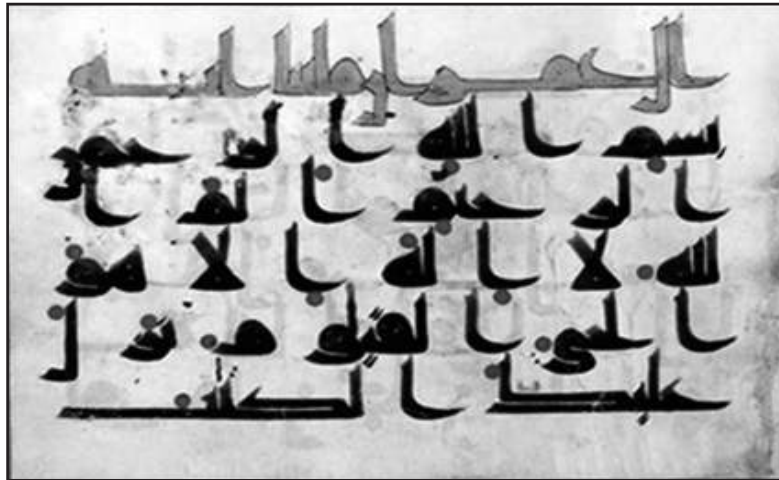 ال عمرن
بسم ا لله ا لر حمن
ا لر حيم ا لم ا
لله لا ا له ا لا هو
ا لحى ا لقيوم نز ل
عليك ا لكتب